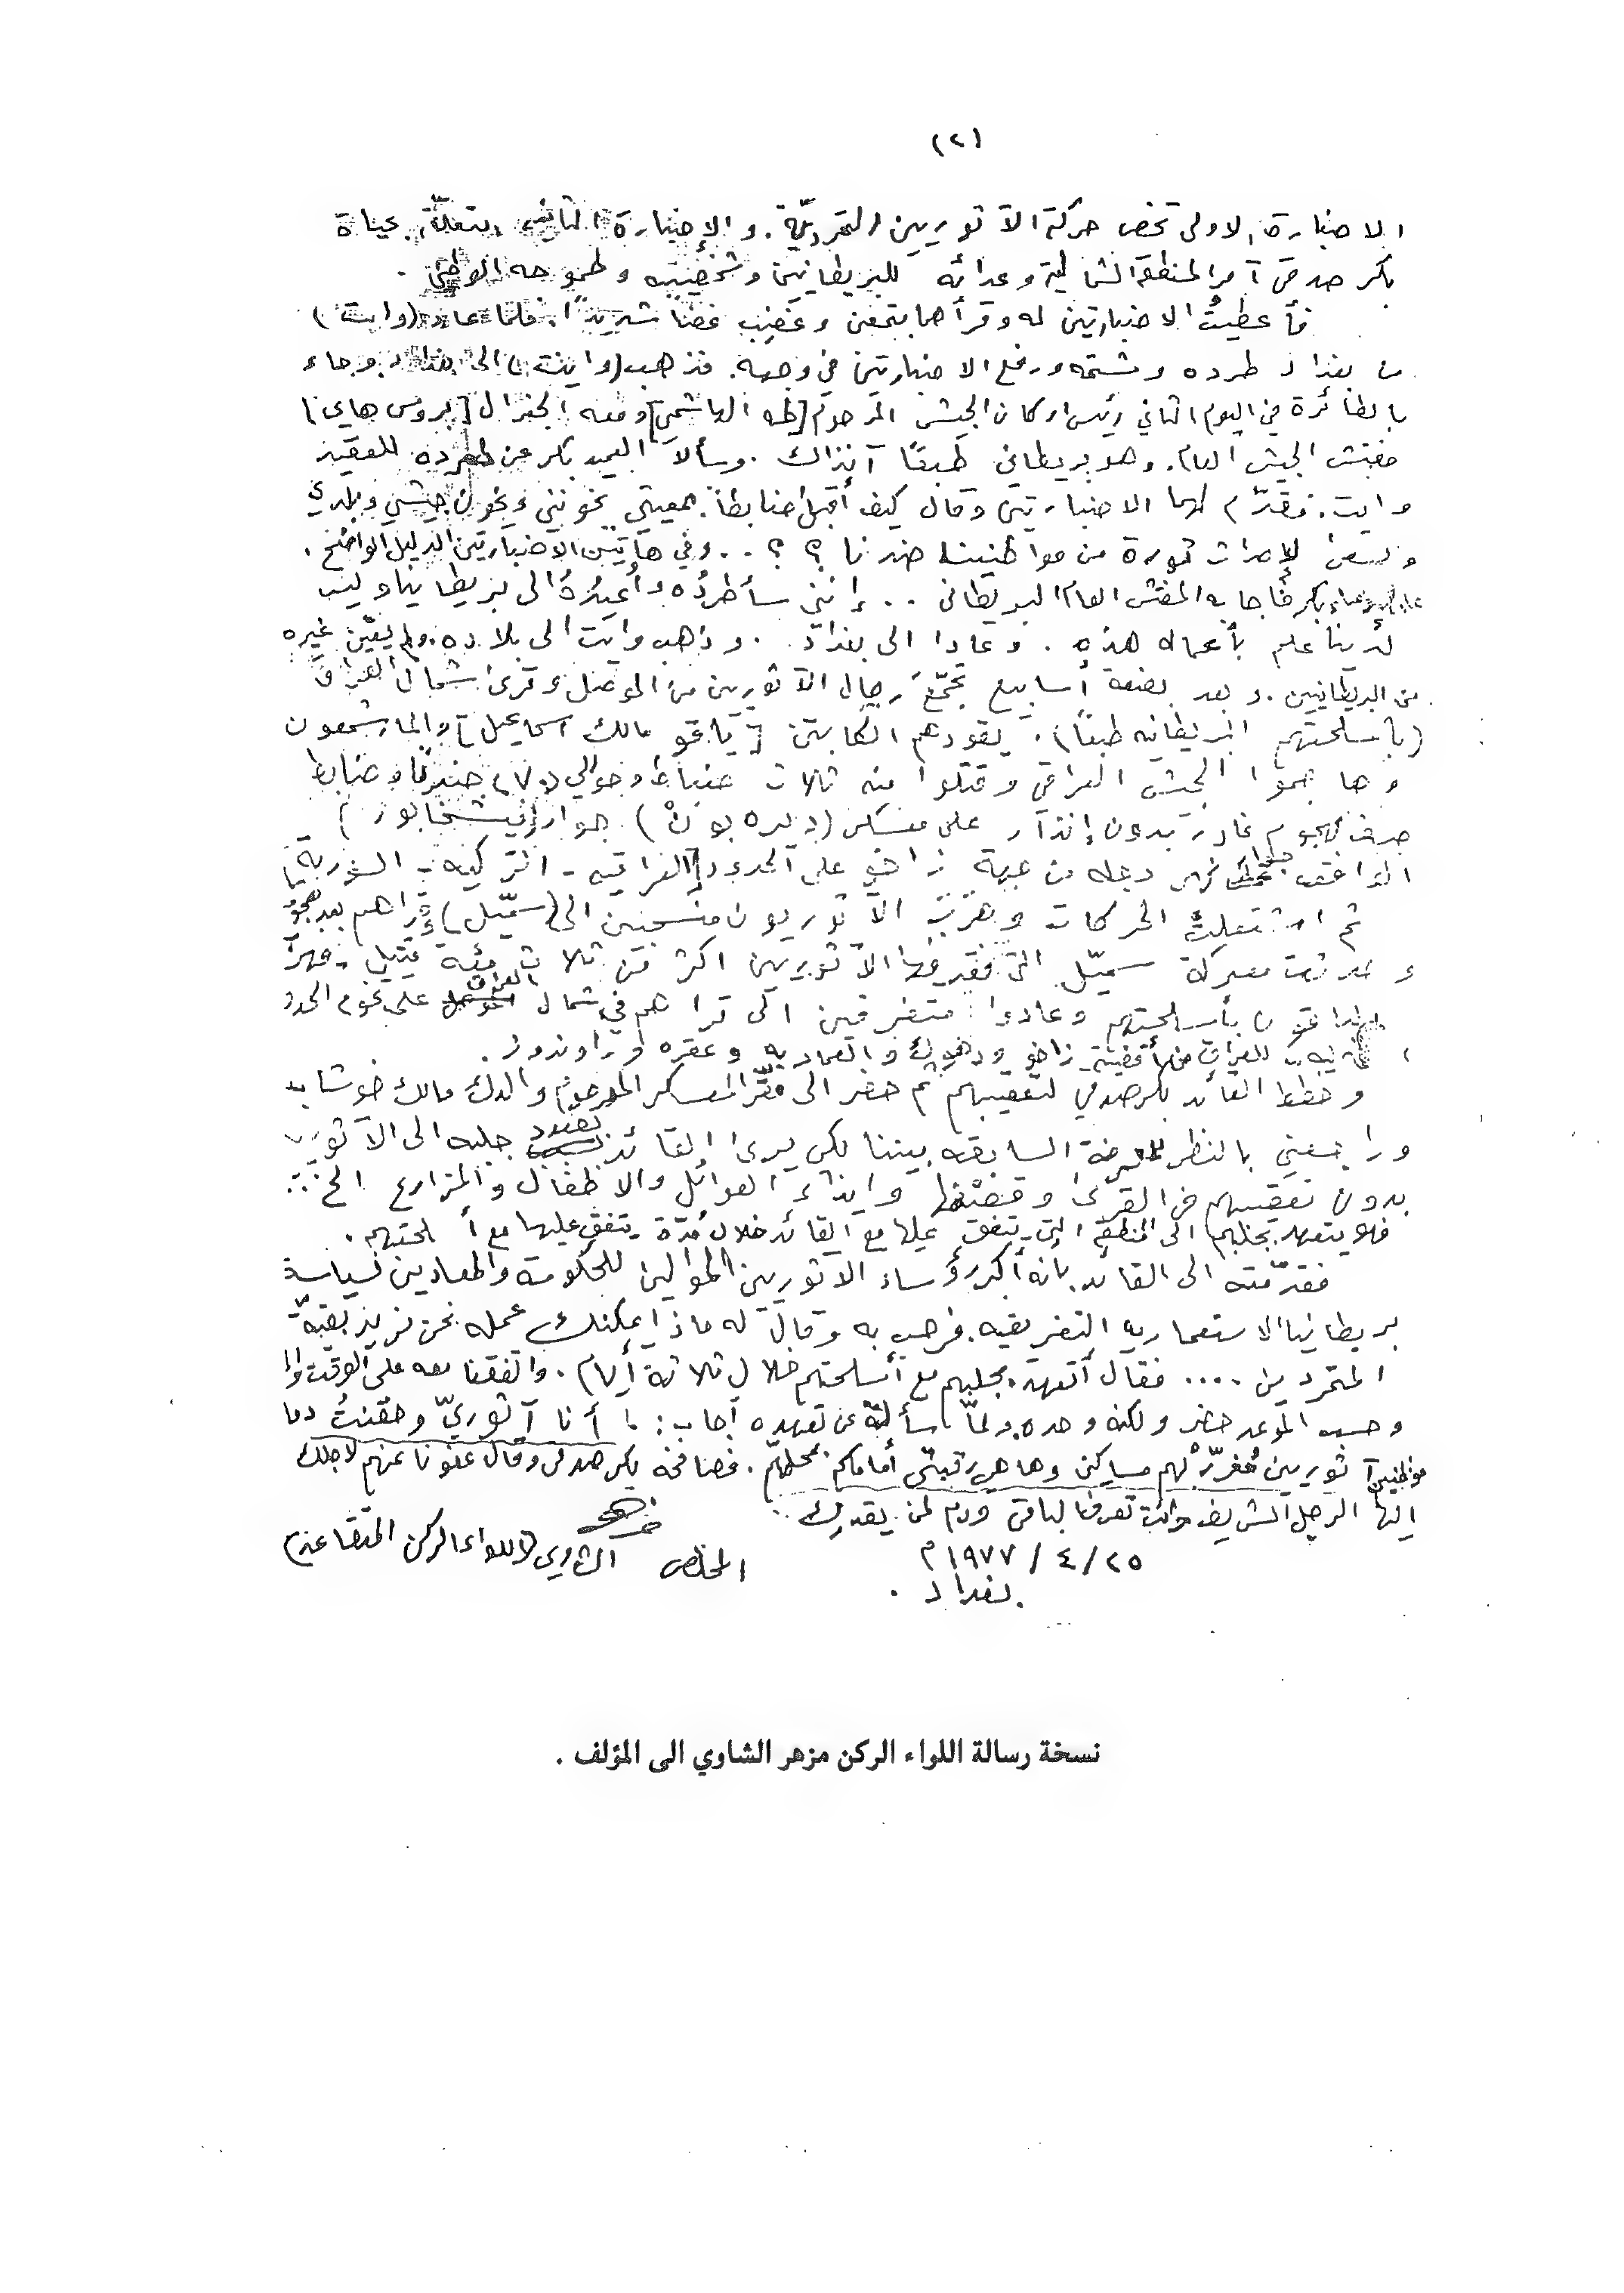 (٢)
الاخبارة الاولى تخص حركة الآثوريين التمردية. والإخبارة الثانية متعلقة بحياة
بكر صدقي آمر المنطقة الشمالية وعدائه للبريطانيين وشخصيته وطموحه الوطني.
فأعطيتُ الاخبارتين له وقرأهما بتمعن وغضِب غضباً شديداً. فلما عاد (وايت)
من بغداد طرده وشتمه ورفع الاخبارتين في وجهه. فذهب (وايت) الى بغداد وجاء
بالطائرة في اليوم الثاني رئيس اركان الجيش المرحوم [طه الهاشمي] ومعه الجنرال [بروس هاي]
مفتش الجيش العام. وهو بريطاني طبعاً آنذاك. وسألا العميد بكر عن طرده للعقيد
وايت. فقدّم لهما الاخبارتين وقال كيف أقبل ضابطاً بمعيتي يخونني ويخون جيشي وبلدي
ويسعى لإحداث ثورة من مواطنينا ضدنا ؟ ؟ .. وفي هاتين الاخبارتين الدليل الواضح.
بكر فأجابه المفتش العام البريطاني .. إنني سأطرده وأعيدُهُ الى بريطانيا وليس
لدينا علم بأعماله هذه. وعادا الى بغداد. وذهب وايت الى بلاده. ولم يعيّن غيره
من البريطانيين. وبعد بضعة أسابيع تجمّع رجال الآثوريين من الموصل وقرى شمال العراق
(بأسلحتهم البريطانيه طبعاً). يقودهم الكابتن [ياقو مالك اسماعيل] والمارشمعون
وهاجموا الجيش العراقي وقتلوا منه ثلاث ضباط وحوالي (٧٠) جندياً وضابط
صف بهجوم غادر بدون إنذار على معسكر (ديره بون) جوار (فيشخابور)
الواقف جوار نهر دجله من جهة زاخو على الحدود العراقيه - التركيه - السورية
ثم اشتعلت الحركات وهرب الآثوريون منسحبين الى (سمّيل) وقراهم بعد
وحدثت معركة سميّل التي فقد فيها الآثوريين اكثر من ثلاث مئة قتيل.
الباقون بأسلحتهم وعادوا متفرقين الى قراهم في شمال العراق على تخوم الحدود
للعراق من أقضية زاخو ودهوك والعماديه وعقره وراوندوز.
وخطط القائد بكر صدقي لتعقيبهم ثم حضر الى مقرّ المعسكر المرحوم والدك مالك خوشابه
وراجعني بالنظر للمعرفة السابقه بيننا لكي يرى القائد بصدد جلبه الى الآثوريين
بدون تعقيبهم في القرى وقصفها وايذاء العوائل والاطفال والمزارع الخ ...
فهو يتعهد بجلبهم الى المنطقة التي يتفق عليها مع القائد خلال مدّة يتفق عليها مع أسلحتهم.
فقدّمته الى القائد بانه أكبر رؤساء الاثوريين الموالين للحكومة والمعادين لسياسة
بريطانيا الاستعماريه التفريقيه. فرحب به وقال له ماذا يمكنك عمله نحن نريد بقيّة
المتمردين .... فقال أتعهد بجلبهم مع أسلحتهم خلال ثلاثة أيام. واتفقنا معه على الوقت
وحسب الموعد حضر ولكنه وحده. ولمّا سألته عن تعهده أجاب: أنا آثوريّ وحقنتُ دماء
مواطنين آثوريين مُغرّر بهم مساكين وها هي رقبتي أمامكم محلهم. فصافحه بكر صدقي وقال عفونا عنهم لاجلك
ايها الرجل الشريف وانت تعرفنا لباقي ودم لمن يقدرك ..
٢٥ / ٤ / ١٩٧٧م
بغداد.
المخلص
الشاوي (اللواء الركن المتقاعد)
نسخة رسالة اللواء الركن مزهر الشاوي الى المؤلف .